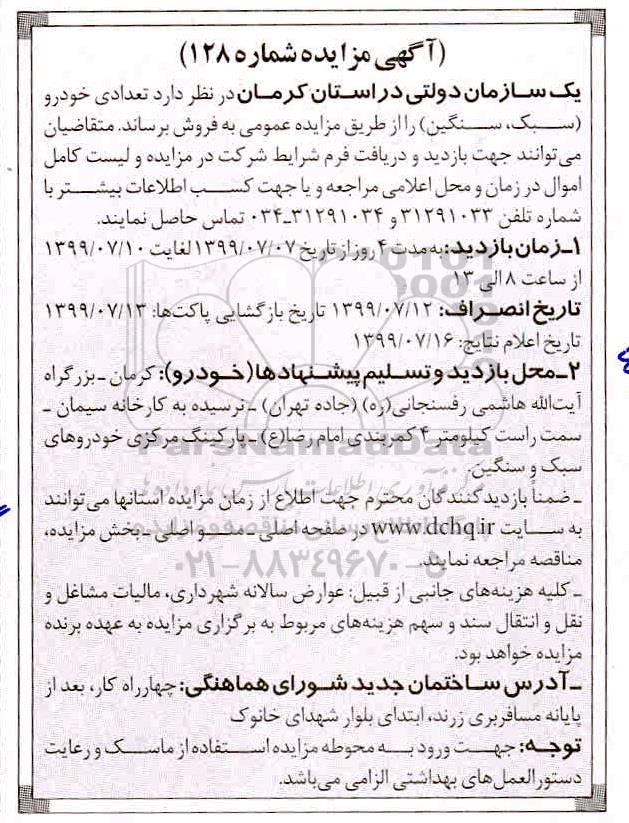 (آگهی مزایده شماره ۱۲۸)
یک سازمان دولتی در استان کرمان در نظر دارد تعدادی خودرو
(سبک، سنگین) را از طریق مزایده عمومی به فروش برساند. متقاضیان
می‌توانند جهت بازدید و دریافت فرم شرایط شرکت در مزایده و لیست کامل
اموال در زمان و محل اعلامی مراجعه و یا جهت کسب اطلاعات بیشتر با
شماره تلفن ۳۱۲۹۱۰۳۳ و ۳۱۲۹۱۰۳۴-۰۳۴ تماس حاصل نمایند.
۱ـ زمان بازدید: به مدت ۴ روز از تاریخ ۱۳۹۹/۰۷/۰۷ لغایت ۱۳۹۹/۰۷/۱۰
از ساعت ۸ الی ۱۳
تاریخ انصراف: ۱۳۹۹/۰۷/۱۲ تاریخ بازگشایی پاکت‌ها: ۱۳۹۹/۰۷/۱۳
تاریخ اعلام نتایج: ۱۳۹۹/۰۷/۱۶
۲ـ محل بازدید و تسلیم پیشنهادها (خودرو): کرمان ـ بزرگراه
آیت‌الله هاشمی رفسنجانی(ره) (جاده تهران) ـ نرسیده به کارخانه سیمان ـ
سمت راست کیلومتر ۴ کمربندی امام رضا(ع) ـ پارکینگ مرکزی خودروهای
سبک و سنگین.
ـ ضمناً بازدیدکنندگان محترم جهت اطلاع از زمان مزایده استانها می‌توانند
به سایت www.dchq.ir در صفحه اصلی ـ منو اصلی ـ بخش مزایده،
مناقصه مراجعه نمایند.
ـ کلیه هزینه‌های جانبی از قبیل: عوارض سالانه شهرداری، مالیات مشاغل و
نقل و انتقال سند و سهم هزینه‌های مربوط به برگزاری مزایده به عهده برنده
مزایده خواهد بود.
ـ آدرس ساختمان جدید شورای هماهنگی: چهارراه کار، بعد از
پایانه مسافربری زرند، ابتدای بلوار شهدای خانوک
توجه: جهت ورود به محوطه مزایده استفاده از ماسک و رعایت
دستورالعمل‌های بهداشتی الزامی می‌باشد.
ParsNamadData
۰۲۱-۸۸۳۴۹۶۷۰-۵